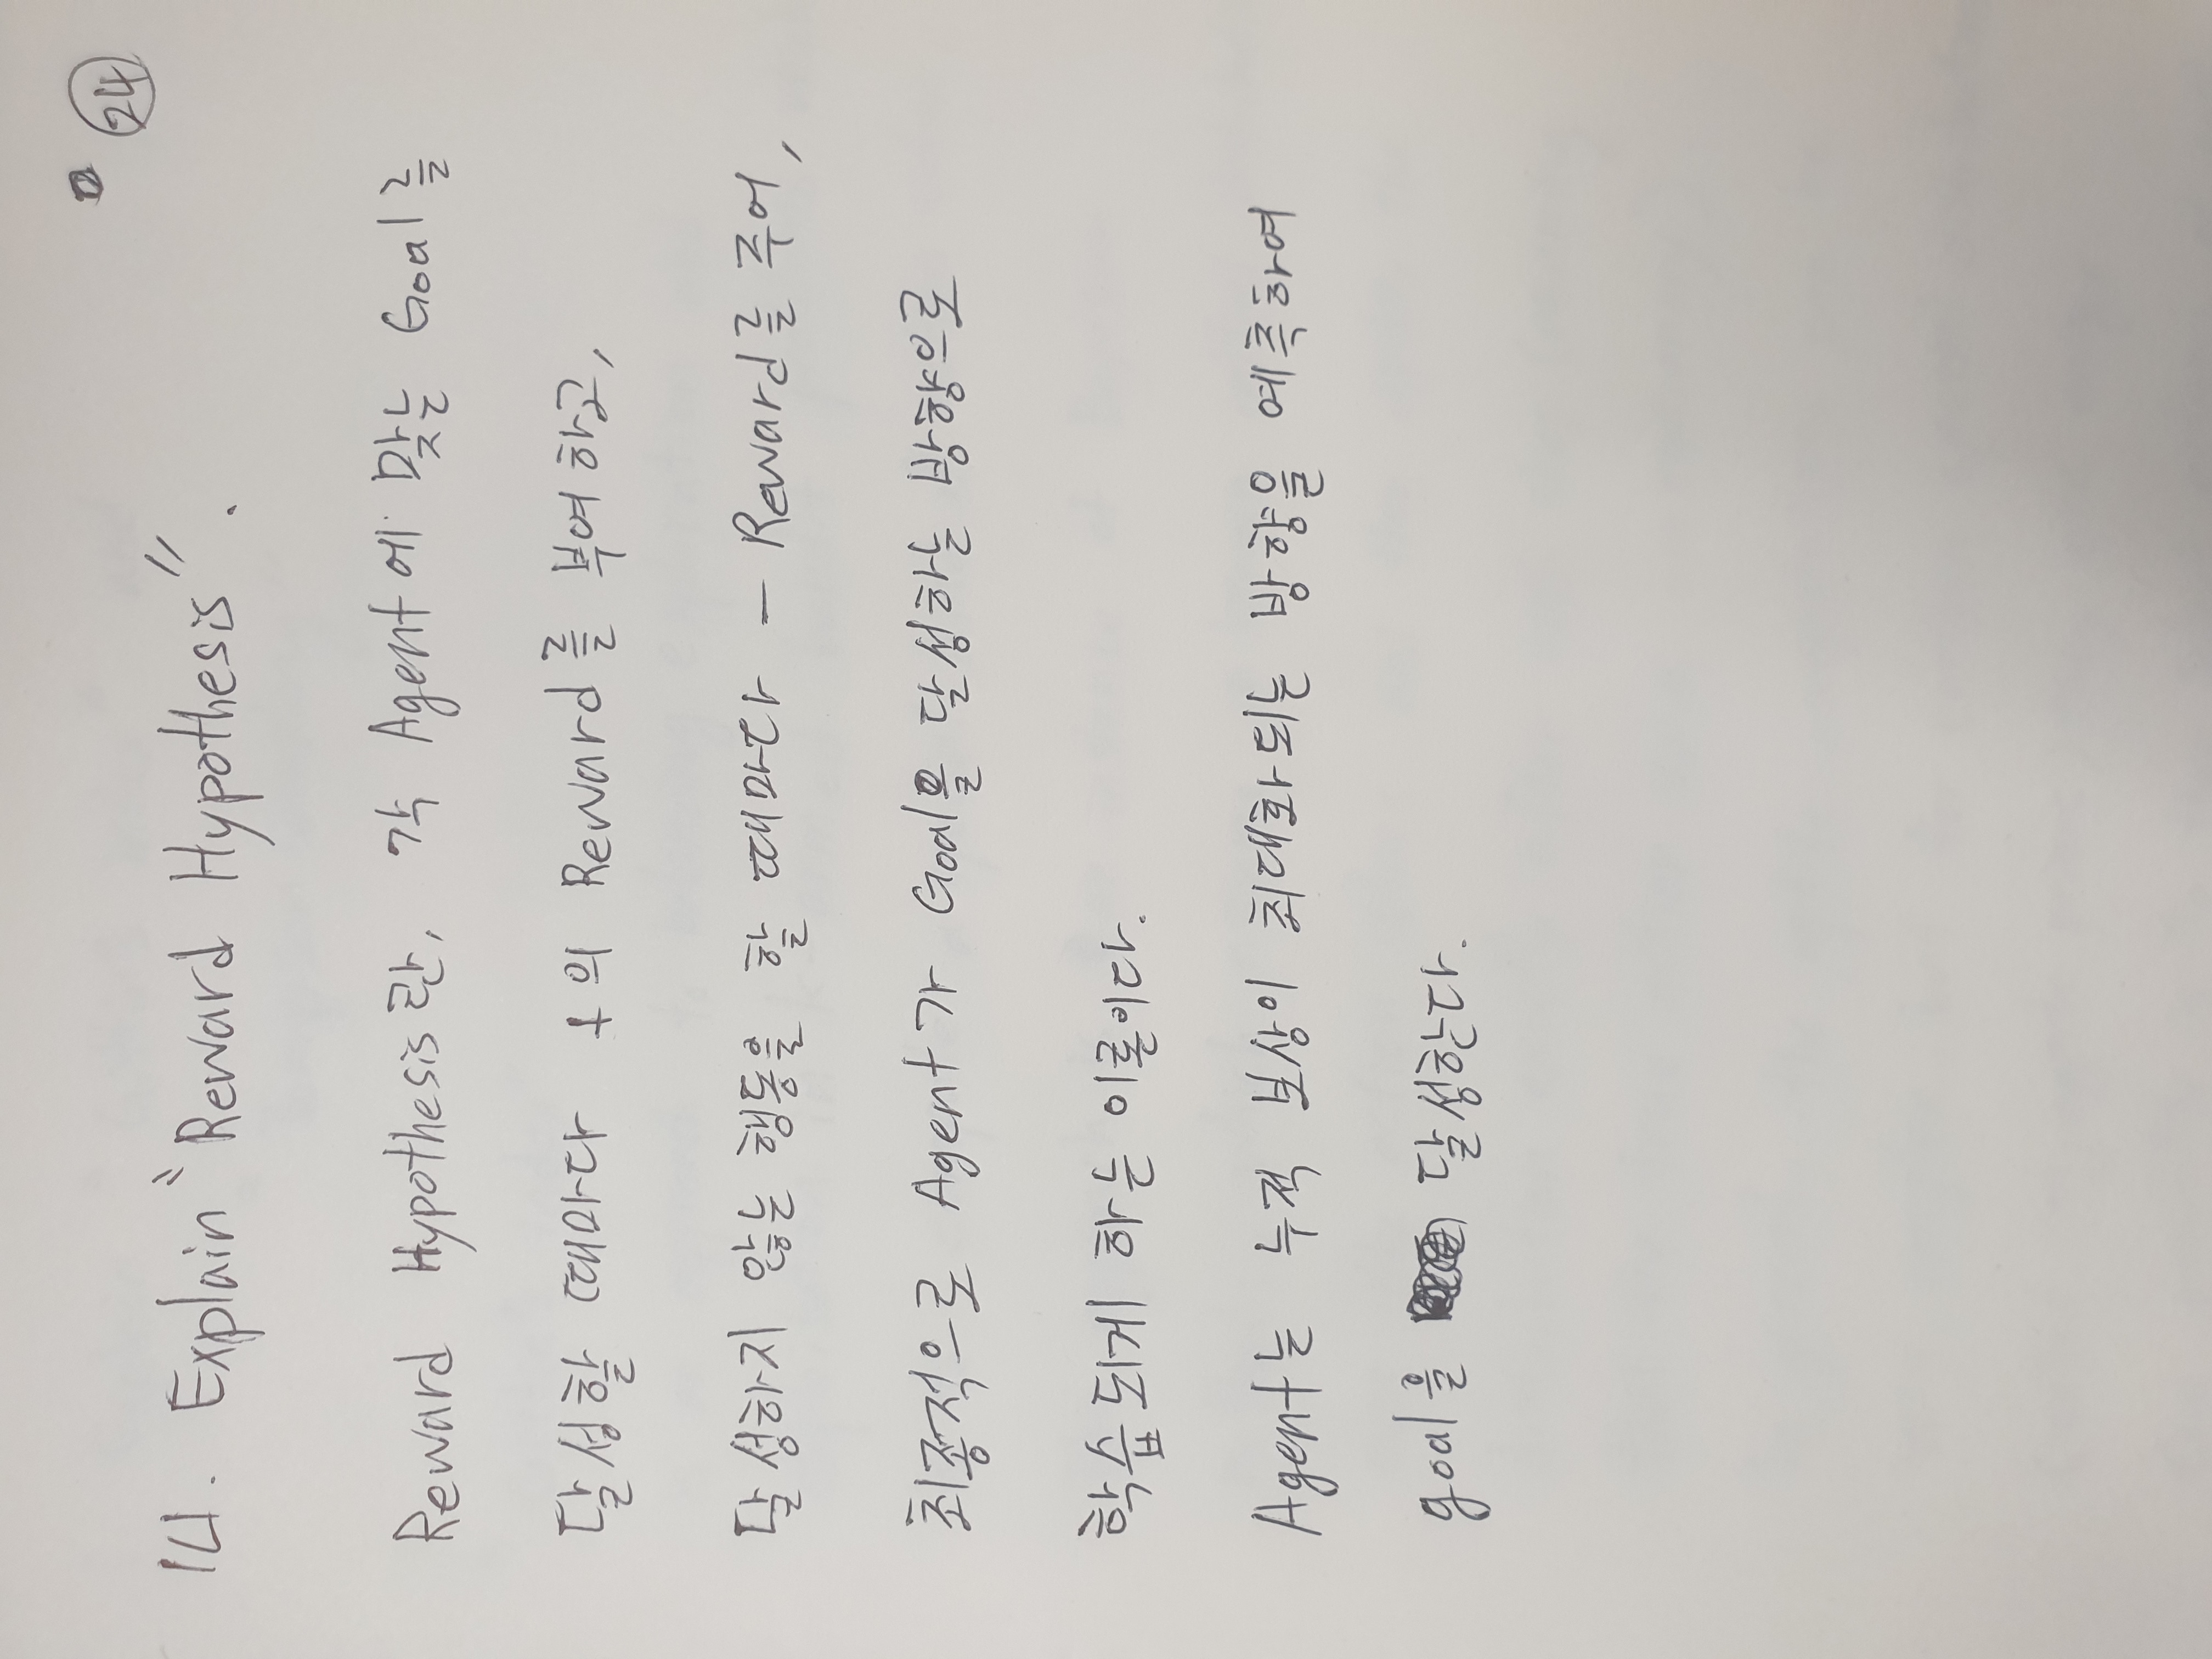 24
14. Explain "Reward Hypothesis".
Reward Hypothesis란, 각 Agent에 맞는 Goal를
달성할 때마다 +의 Reward를 부여하고,
달성하지 않는 행동을 할 때마다 - Reward를 주어,
최종적으로 Agent가 Goal을 달성하는 방향으로
학습되게 하는 이론이다.
Agent는 누적 보상이 최대화되는 방향을 예측하여
goal을 달성한다.